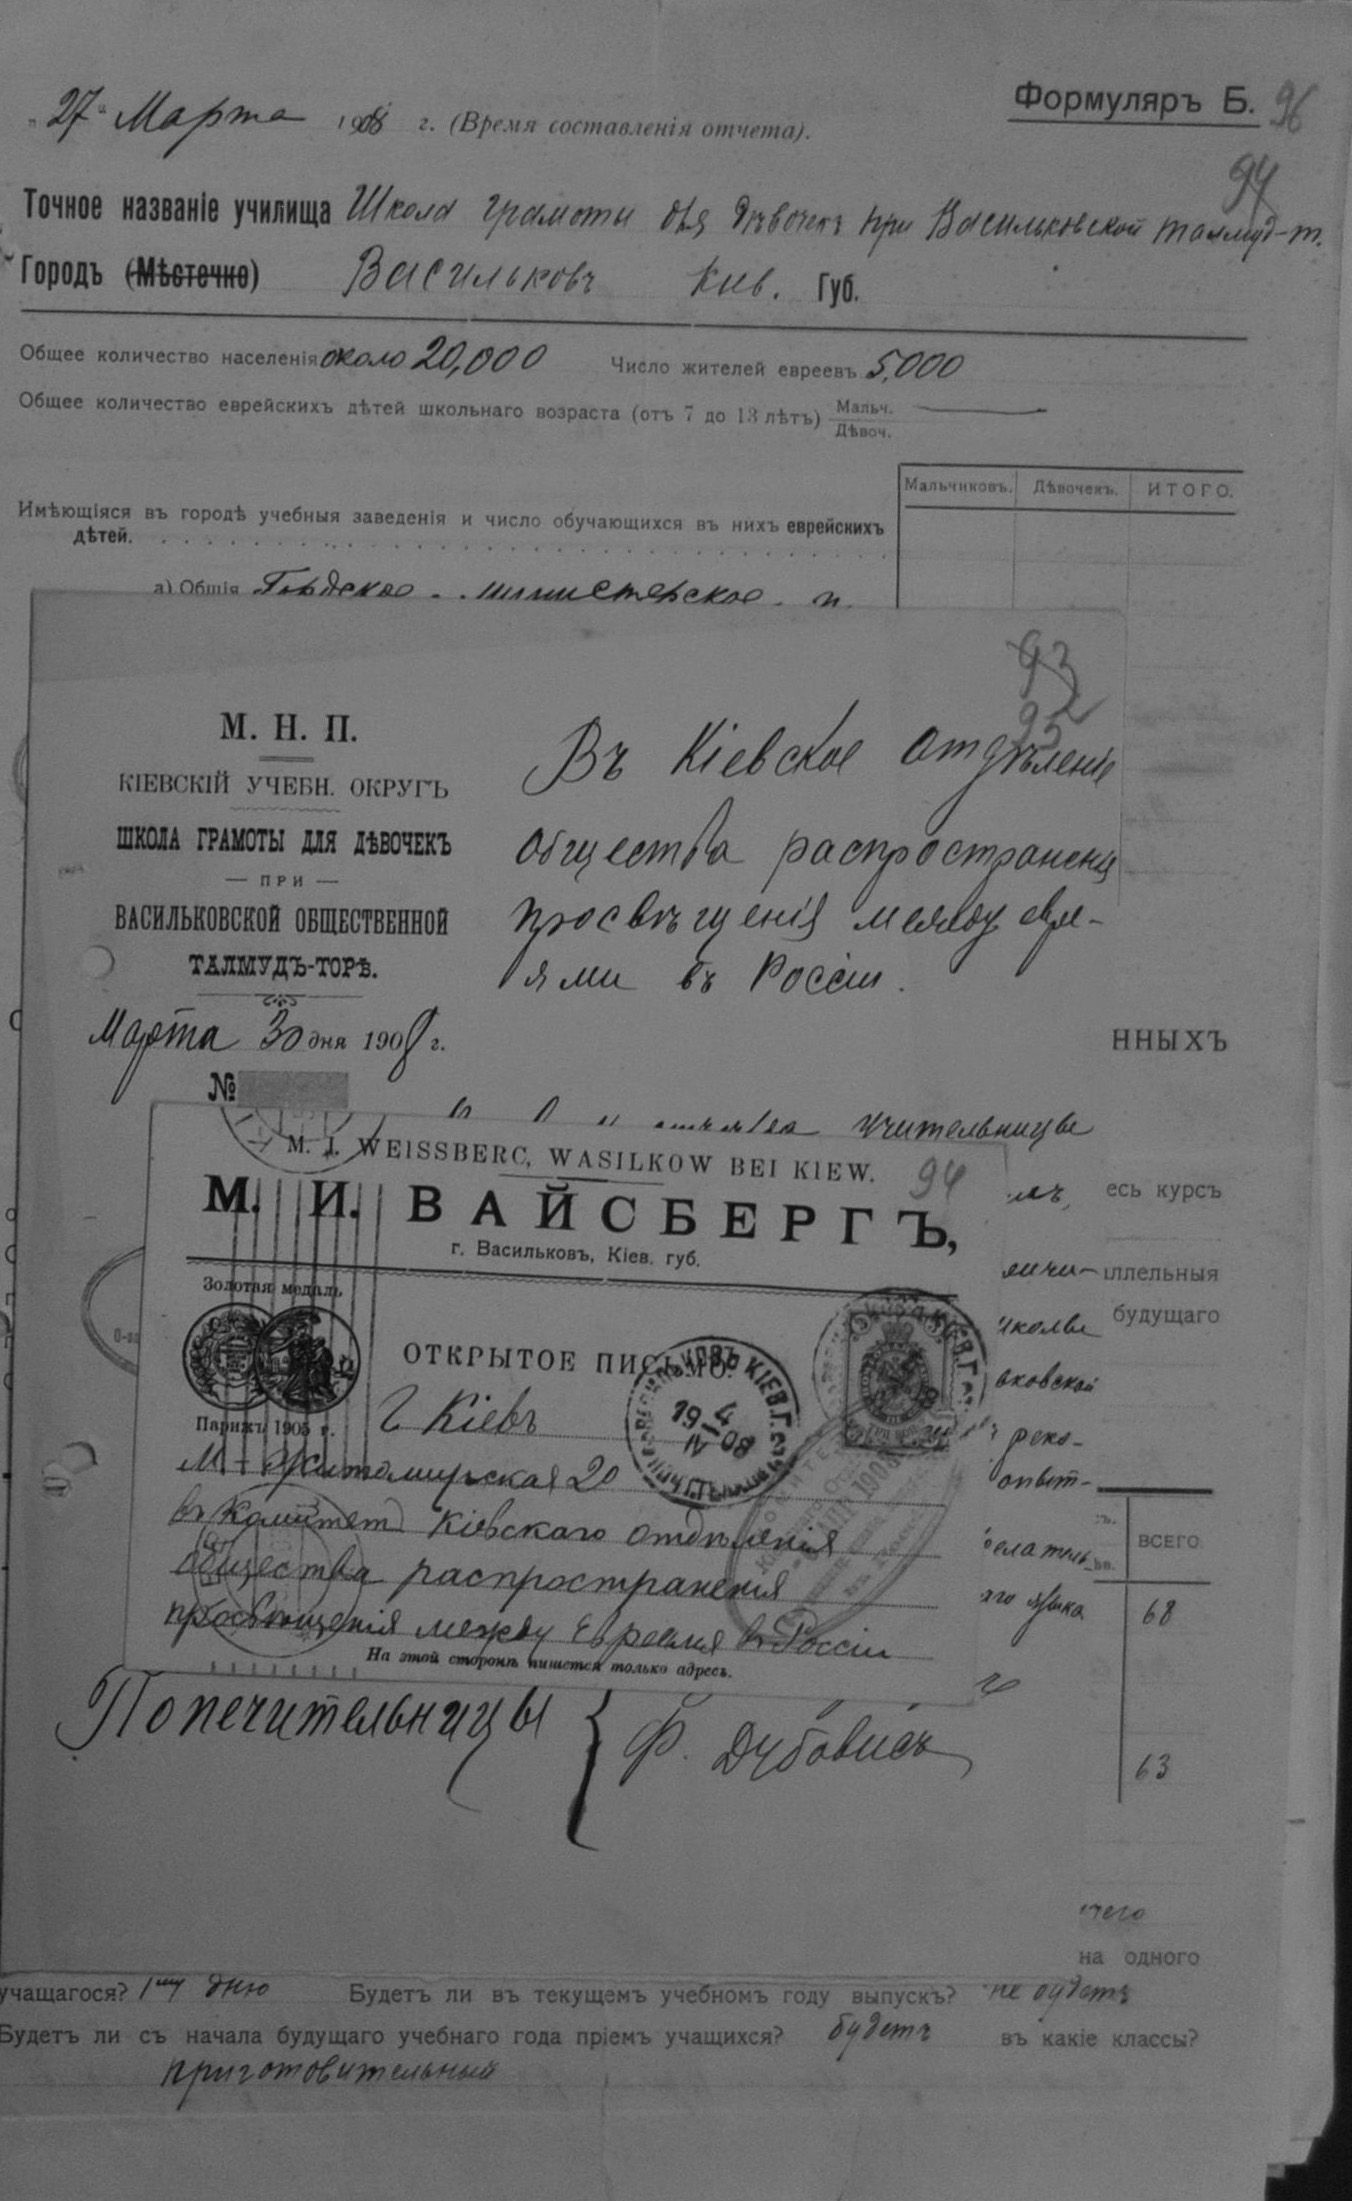 Формуляръ Б. 96
„27“ Марта 1908 г. (Время составленія отчета).
94
Точное названіе училища Школа грамоты для дѣвочекъ при Васильковской талмуд-т.
Городъ (Мѣстечко) Васильковъ Кив. Губ.
Общее количество населенія около 20,000 Число жителей евреевъ 5,000
Общее количество еврейскихъ дѣтей школьнаго возраста (отъ 7 до 13 лѣтъ) Мальч.
Дѣвоч.
Мальчиковъ. Дѣвочекъ. ИТОГО.
Имѣющіяся въ городѣ учебныя заведенія и число обучающихся въ нихъ еврейскихъ
дѣтей.
а) Общія Городское министерское
93
95
М. Н. П.
КІЕВСКІЙ УЧЕБН. ОКРУГЪ
ШКОЛА ГРАМОТЫ ДЛЯ ДѢВОЧЕКЪ
— ПРИ —
ВАСИЛЬКОВСКОЙ ОБЩЕСТВЕННОЙ
ТАЛМУДЪ-ТОРѢ.
Марта 30 дня 1908 г.
№
Въ Кіевское отдѣленіе
общества распространенія
просвѣщенія между евре-
ями въ Россіи.
нныхъ
учительницы
есь курсъ
ллельныя
будущаго
школы
ековской
реко-
желатель
языка
ВСЕГО
68
63
M. I. WEISSBERG, WASILKOW BEI KIEW.
94
М. И. ВАЙСБЕРГЪ,
г. Васильковъ, Кіев. губ.
Золотая медаль
Парижъ 1905 г.
ОТКРЫТОЕ ПИСЬМО.
ВАСИЛЬКОВЪ КІЕВ. Г.
4
19 08
IV
Г Кіевъ
М-Житомирская 20
въ Комитет Кіевскаго отдѣленія
общества распространенія
просвѣщенія между Евреями въ Россіи
На этой сторонѣ пишется только адресъ.
Попечительницы { Ф. Дубовисъ
чего
на одного
учащагося? 1му дню Будетъ ли въ текущемъ учебномъ году выпускъ? не будетъ
Будетъ ли съ начала будущаго учебнаго года пріемъ учащихся? будетъ въ какіе классы?
приготовительный